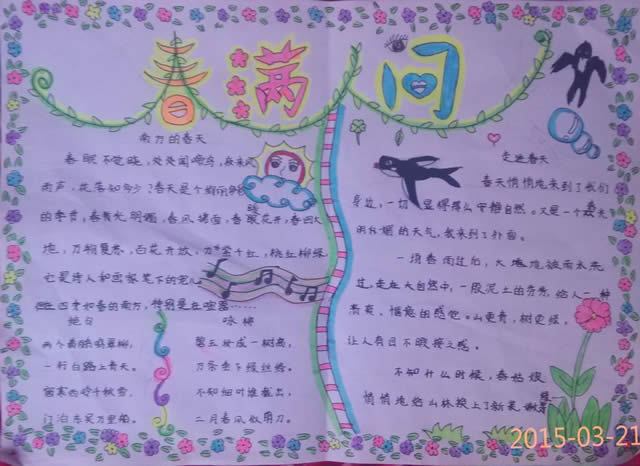 春满问
南方的春天
春眠不觉晓，处处闻啼鸟，夜来风
雨声，花落知多少？春天是个
的季节，春青光明媚，春风拂面，春暖花开，春回大
地，万物复苏，百花开放，万紫千红，桃红柳绿
它是诗人和画家笔下的宠儿
四季如春的南方，特别是在
绝句
两个黄鹂鸣翠柳，
一行白鹭上青天。
窗含西岭千秋雪，
门泊东吴万里船。
咏柳
碧玉妆成一树高，
万条垂下绿丝绦。
不知细叶谁裁出，
二月春风似剪刀。
走进春天
春天悄悄地来到了我们
身边，一切显得那么宁静自然。又是一个春天
的天气，我来到了外面。
一场春雨过后，大地被雨水洗
过，走在大自然中，一股泥土的芬芳，给人一种
清爽、惬意的感觉。山更青，树更绿，
让人有目不暇接之感。
不知什么时候，春姑娘
悄悄地给山林换上了新装
2015-03-21